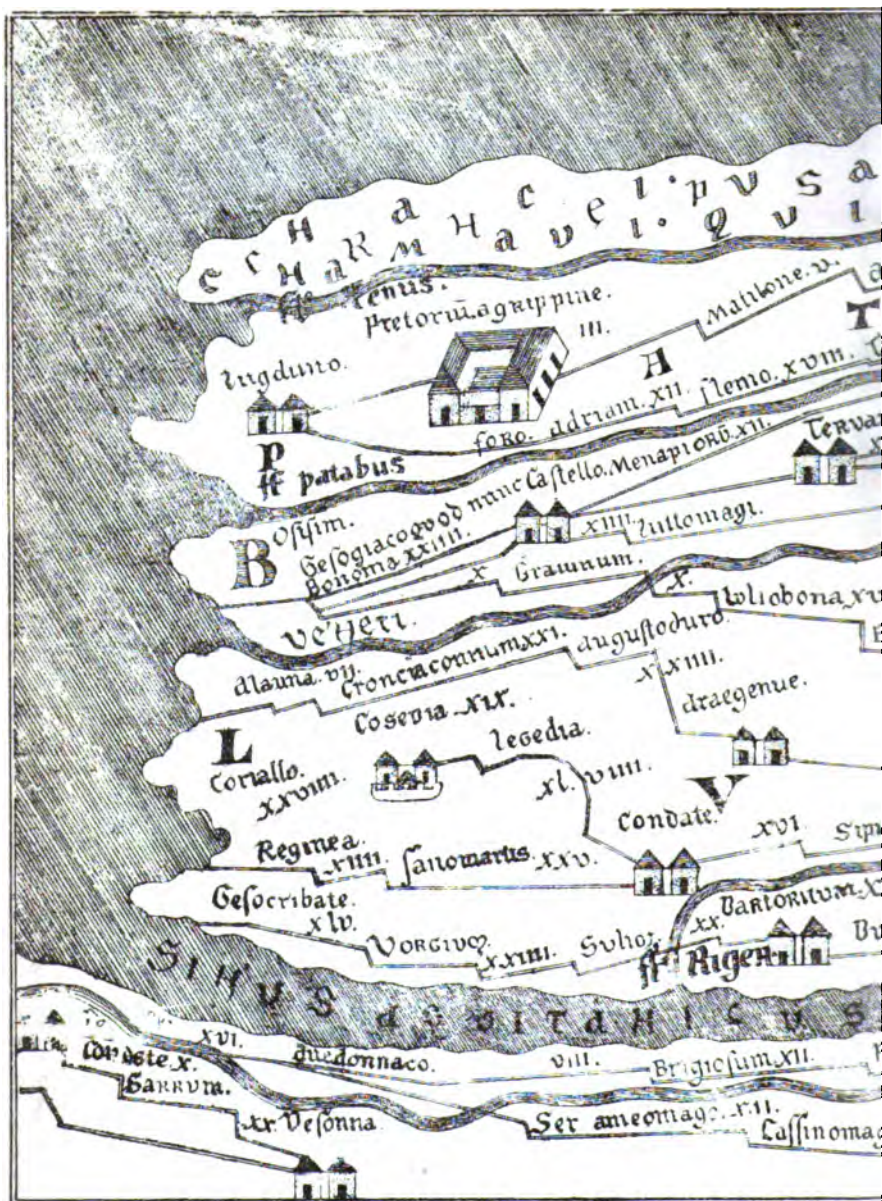 CHACI·PVSA
CHARMHAVEI·QVI
ff
Renus.
Pretoriū. agrippine.
III.
Matilone. v.
T
lugduno.
A
foro. adriani. XII.
flemo. XVIII.
P
ff patabus
Tervan
Osism.
B
Gesogiaco qvod nunc
Castello. Menapiorū. XII.
Bonoma XXIIII.
XIIII.
luttomagi.
X
Graiunum.
X.
Iuliobona. XV
Veneti.
Alauna. VII.
Cronciaconnum. XXI.
augustoduro.
XXIIII.
Cosedia. XIX.
Araegenue.
L
Coriallo.
XXVIIII.
legedia
XL. VIIII.
V
Condate.
XVI
Sipi
Reginea.
XIIII.
fanomartis. XXV.
Gesocribate.
XLV.
Dartoritum. X
Vorgium.
XXIIII.
Sulim
XX.
ff Riger
Du
SINVS AQVITANICVS
XVI.
Auedonnaco.
VIII.
Brigiosum. XII.
X.
Garrvm.
XX. Vesonna.
Ser ameomago. XII.
Cassinomag